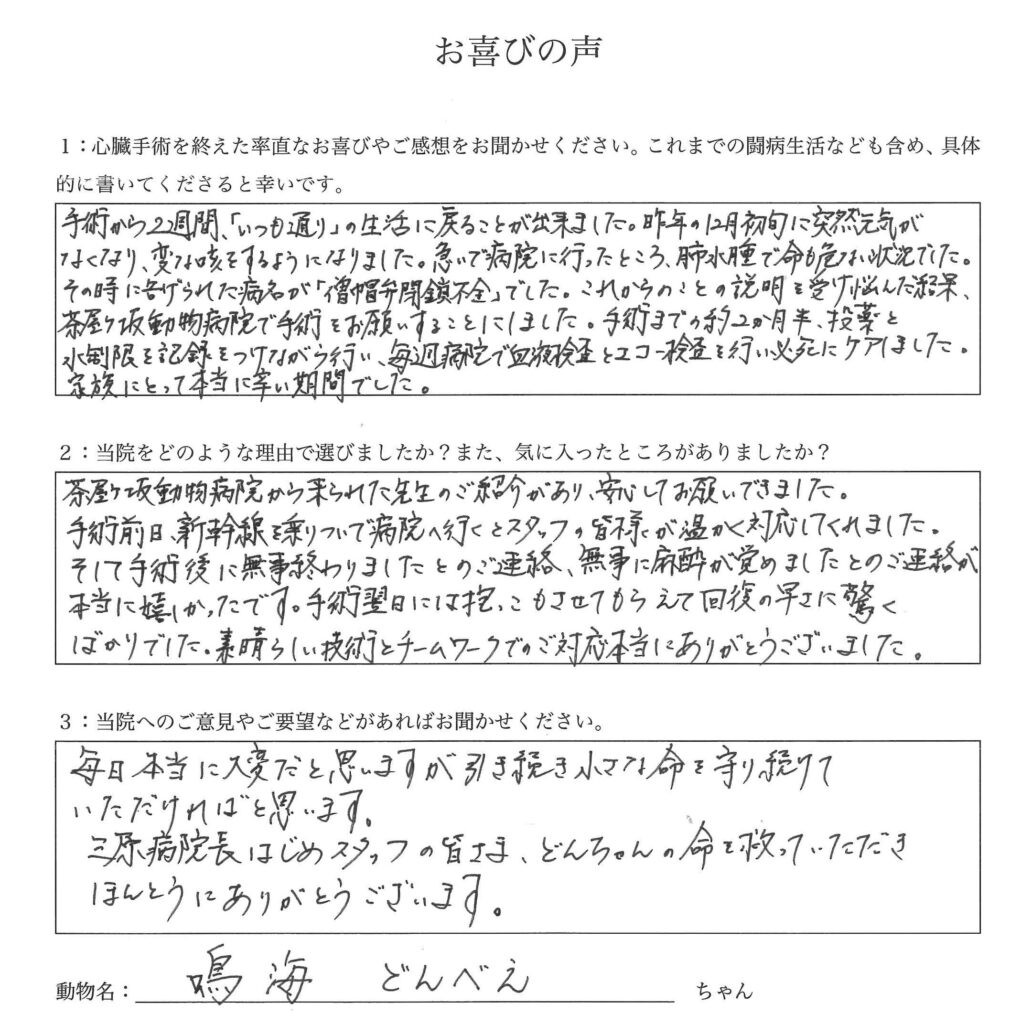 お喜びの声
1：心臓手術を終えた率直なお喜びやご感想をお聞かせください。これまでの闘病生活なども含め、具体
的に書いてくださると幸いです。
手術から2週間、「いつも通り」の生活に戻ることが出来ました。昨年の12月初旬に突然元気が
なくなり、変な咳をするようになりました。急いで病院に行ったところ、肺水腫で命も危ない状況でした。
その時に告げられた病名が「僧帽弁閉鎖不全」でした。これからのことの説明を受け悩んだ結果、
茶屋ヶ坂動物病院で手術をお願いすることにしました。手術までの約2か月半、投薬と
水制限を記録をつけながら行い、毎週病院で血液検査とエコー検査を行い必死にケアしました。
家族にとって本当に辛い期間でした。
2：当院をどのような理由で選びましたか？また、気に入ったところがありましたか？
茶屋ヶ坂動物病院から来られた先生のご紹介があり、安心してお願いできました。
手術前日、新幹線を乗りついで病院へ行くとスタッフの皆様が温かく対応してくれました。
そして手術後に無事終わりましたとのご連絡、無事に麻酔が覚めましたとのご連絡が
本当に嬉しかったです。手術翌日には抱っこもさせてもらえて回復の早さに驚く
ばかりでした。素晴らしい技術とチームワークでのご対応本当にありがとうございました。
3：当院へのご意見やご要望などがあればお聞かせください。
毎日本当に大変だと思いますが引き続き小さな命を守り続けて
いただければと思います。
三原病院長はじめスタッフの皆さま、どんちゃんの命を救っていただき
ほんとうにありがとうございます。
動物名： 鳴海 どんべえ ちゃん